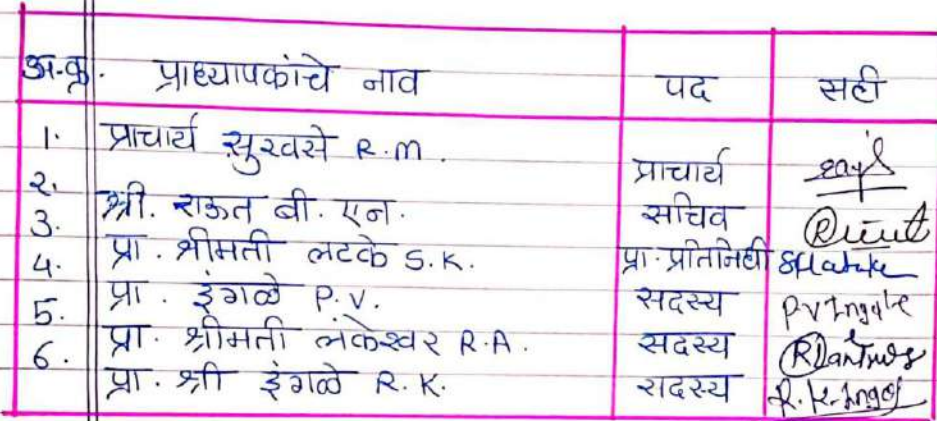 अ.क्र. प्राध्यापकांचे नाव पद सही
1. प्राचार्य सुरवसे R.M. प्राचार्य
2. श्री. राऊत बी. एन. सचिव
3. प्रा. श्रीमती लटके S.K. प्रा. प्रतिनिधी SKlatake
4. प्रा. इंगळे P.V. सदस्य PVIngale
5. प्रा. श्रीमती लंकेश्वर R.A. सदस्य
6. प्रा. श्री इंगळे R.K. सदस्य